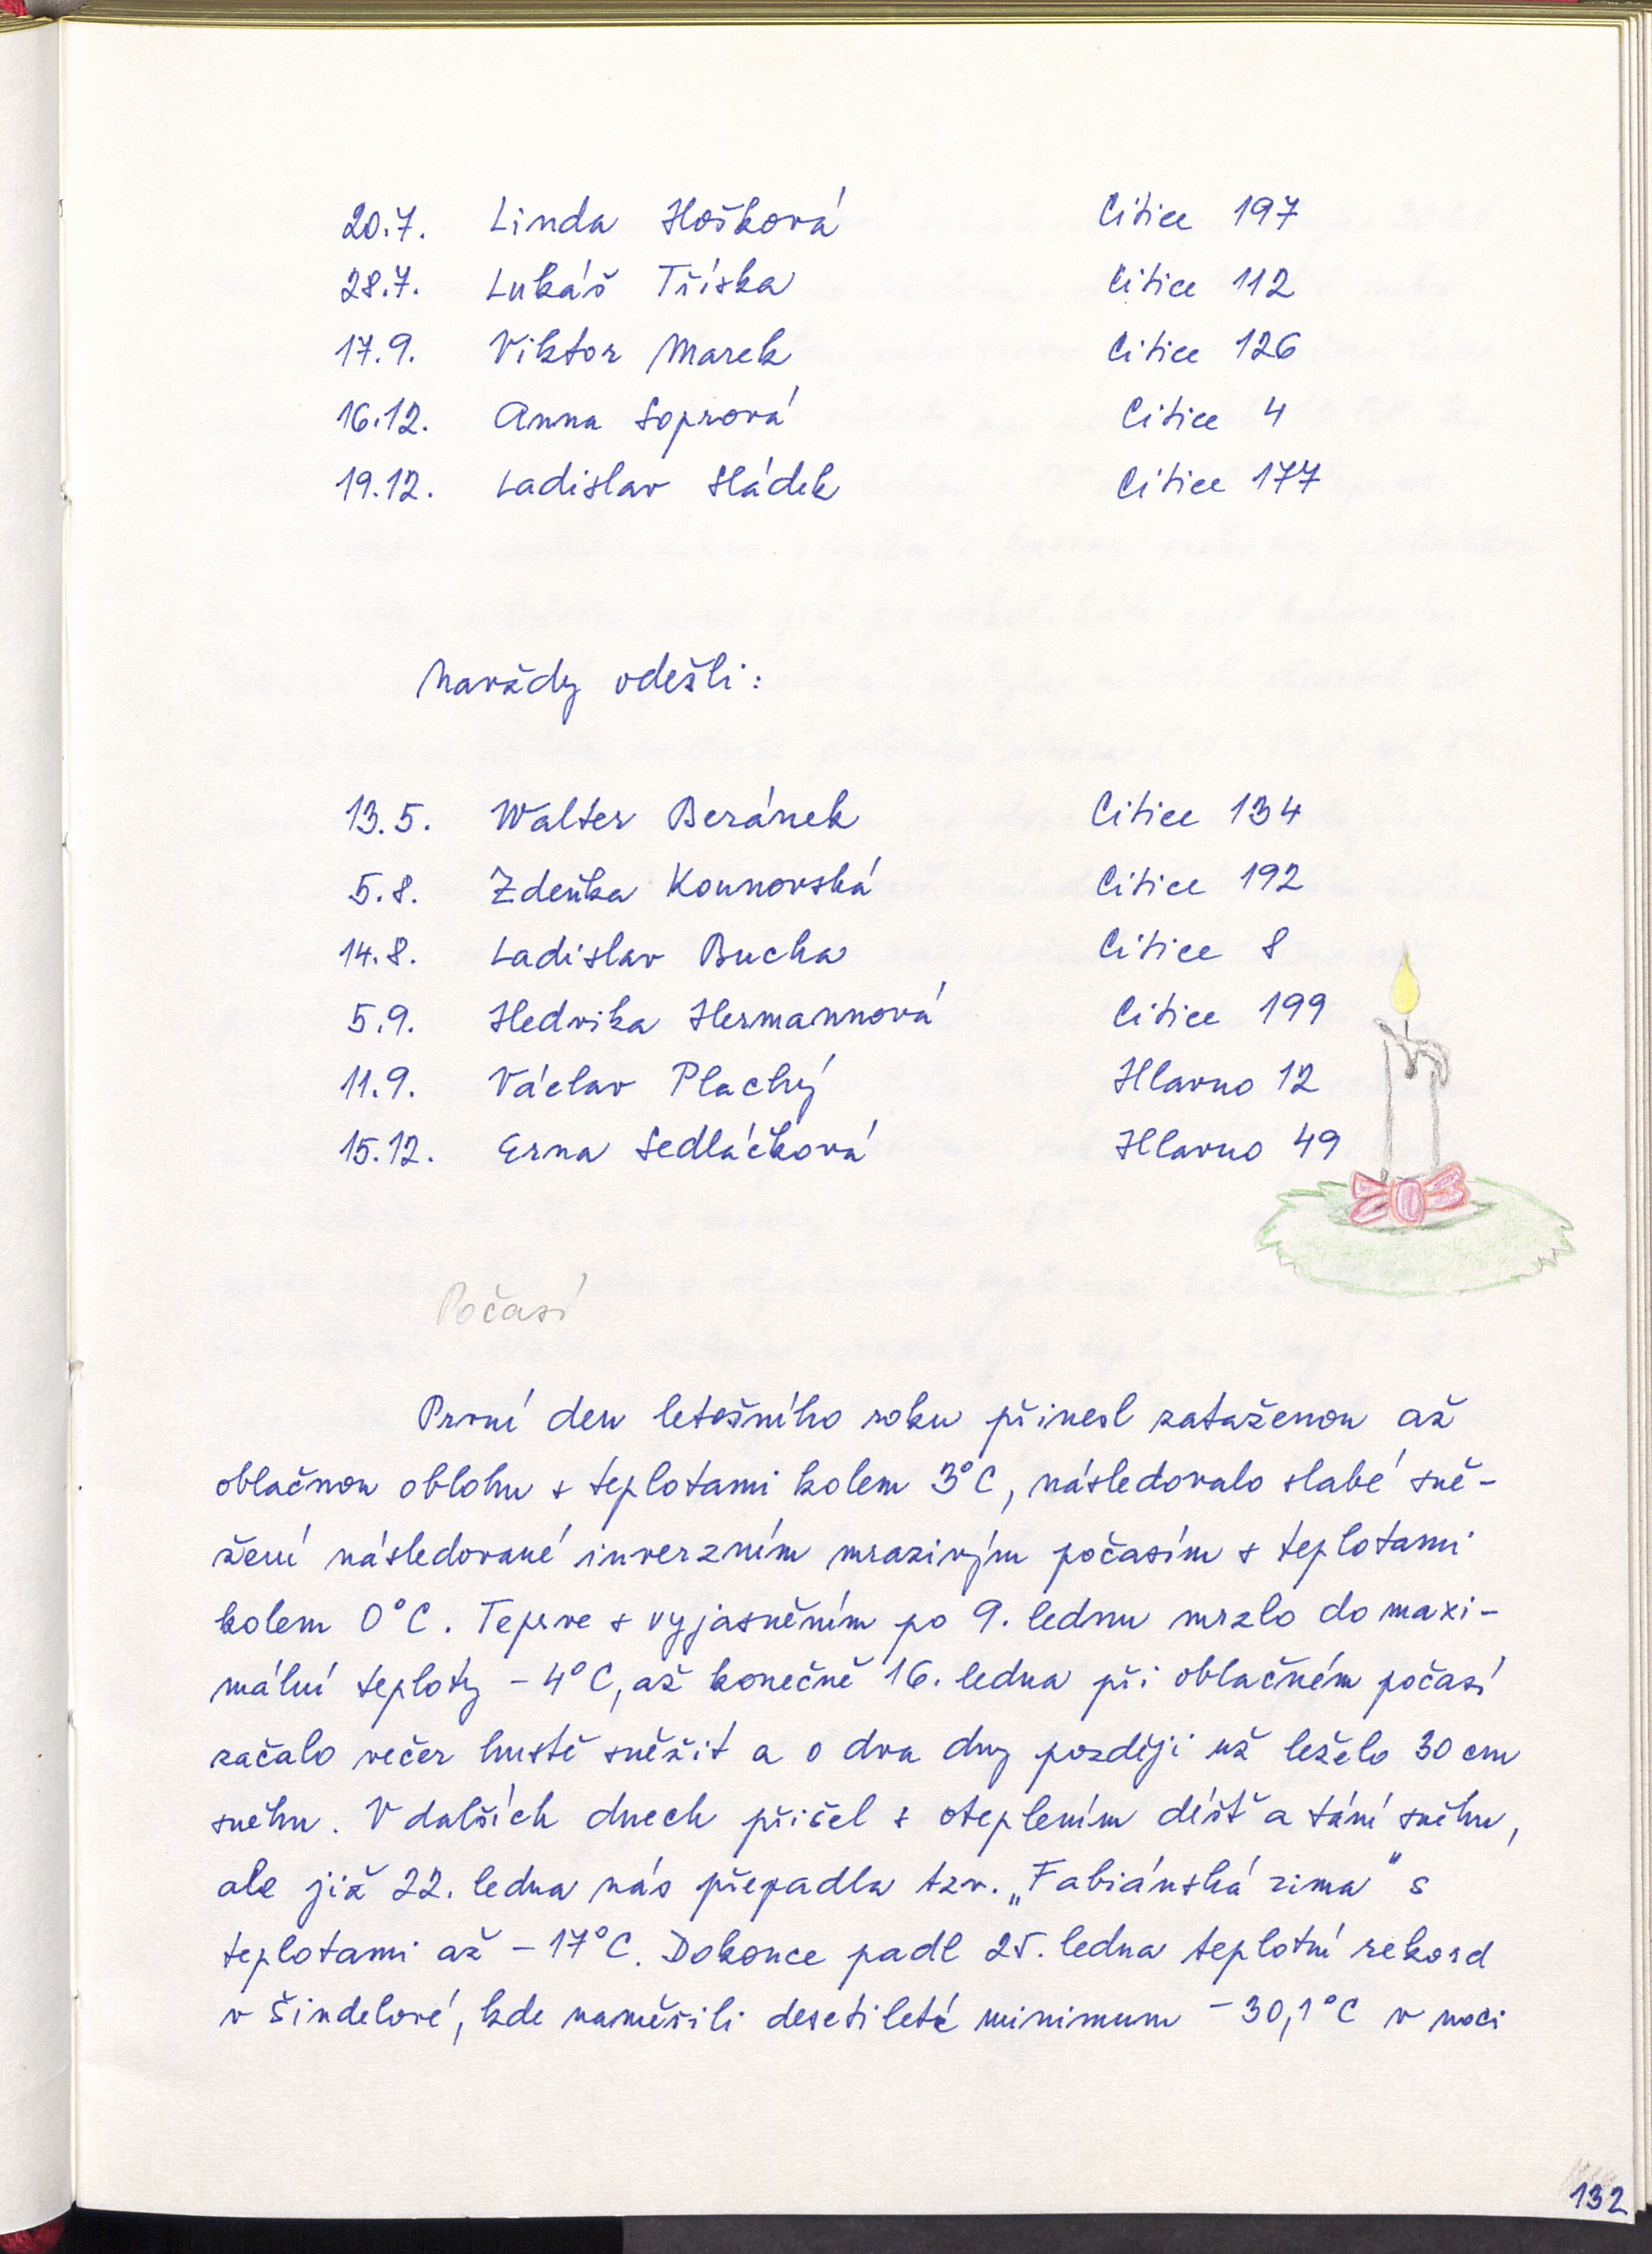 20.7. Linda Hošková Citice 197
28.7. Lukáš Tříska Citice 112
17.9. Viktor Marek Citice 126
16.12. Anna Soprová Citice 4
19.12. Ladislav Sládek Citice 177
Navždy odešli:
13.5. Walter Beránek Citice 134
5.8. Zdeňka Kounovská Citice 192
14.8. Ladislav Bucha Citice 8
5.9. Hedvika Hermannová Citice 199
11.9. Václav Plachý Hlavno 12
15.12. Erna Sedláčková Hlavno 49
Počasí
První den letošního roku přinesl zataženou až
oblačnou oblohu s teplotami kolem 3°C, následovalo slabé sně-
žení následované inverzním mrazivým počasím s teplotami
kolem 0°C. Teprve s vyjasněním po 9. lednu mrzlo do maxi-
mální teploty -4°C, až konečně 16. ledna při oblačném počasí
začalo večer hustě sněžit a o dva dny později už leželo 30 cm
sněhu. V dalších dnech přišel s oteplením déšť a tání sněhu,
ale již 22. ledna nás přepadla tzv. „Fabiánská zima" s
teplotami až -17°C. Dokonce padl 25. ledna teplotní rekord
v Šindelové, kde naměřili desetileté minimum -30,1°C v noci
132